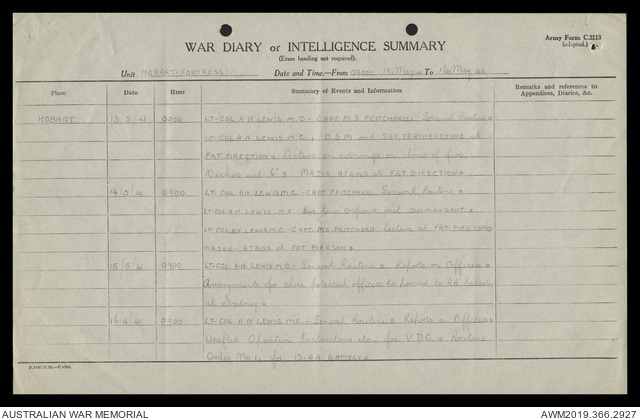 Army Form C.2118
(adapted.)
WAR DIARY or INTELLIGENCE SUMMARY
(Erase heading not required).
Unit HOBART FORTRESS Date and Time—From 0900 13 May 41 To 16 May 41
Place Date Hour Summary of Events and Information Remarks and references to Appendices, Diaries, &c.
HOBART. 13/5/41 0900 LT-COL A.N. LEWIS, M.C. - CAPT. M.S. PRITCHARD. General Routine.
LT-COL A.N. LEWIS, M.C., D.S.M and SGT. FEATHERSTONE at
FRT. DIRECTION. Lecture on coverage on lines of fire,
and 6" MAJOR ATKINS at FRT. DIRECTION.
14/5/41 0900 LT-COL A.N. LEWIS M.C. - CAPT. PRITCHARD. General Routine.
LT-COL A.N. LEWIS M.C. two hour conference with COMMANDANT.
LT-COL A.N. LEWIS M.C. - CAPT. M.S. PRITCHARD lecture at FRT. PIERSON.
MAJOR ATKINS at FRT PIERSON.
15/5/41 0900 LT-COL A.N. LEWIS M.C. - General Routine. Reports on Officers.
Arrangements for three potential officers to proceed to AA School
at Sydney.
16/5/41 0900 LT-COL A.N. LEWIS M.C. - General Routine. Reports on Officers.
Drafted Operation Instructions etc, for V.D.C. Routine
Order No 1, for 13-AA BATTERY.
AUSTRALIAN WAR MEMORIAL AWM2019.366.2927